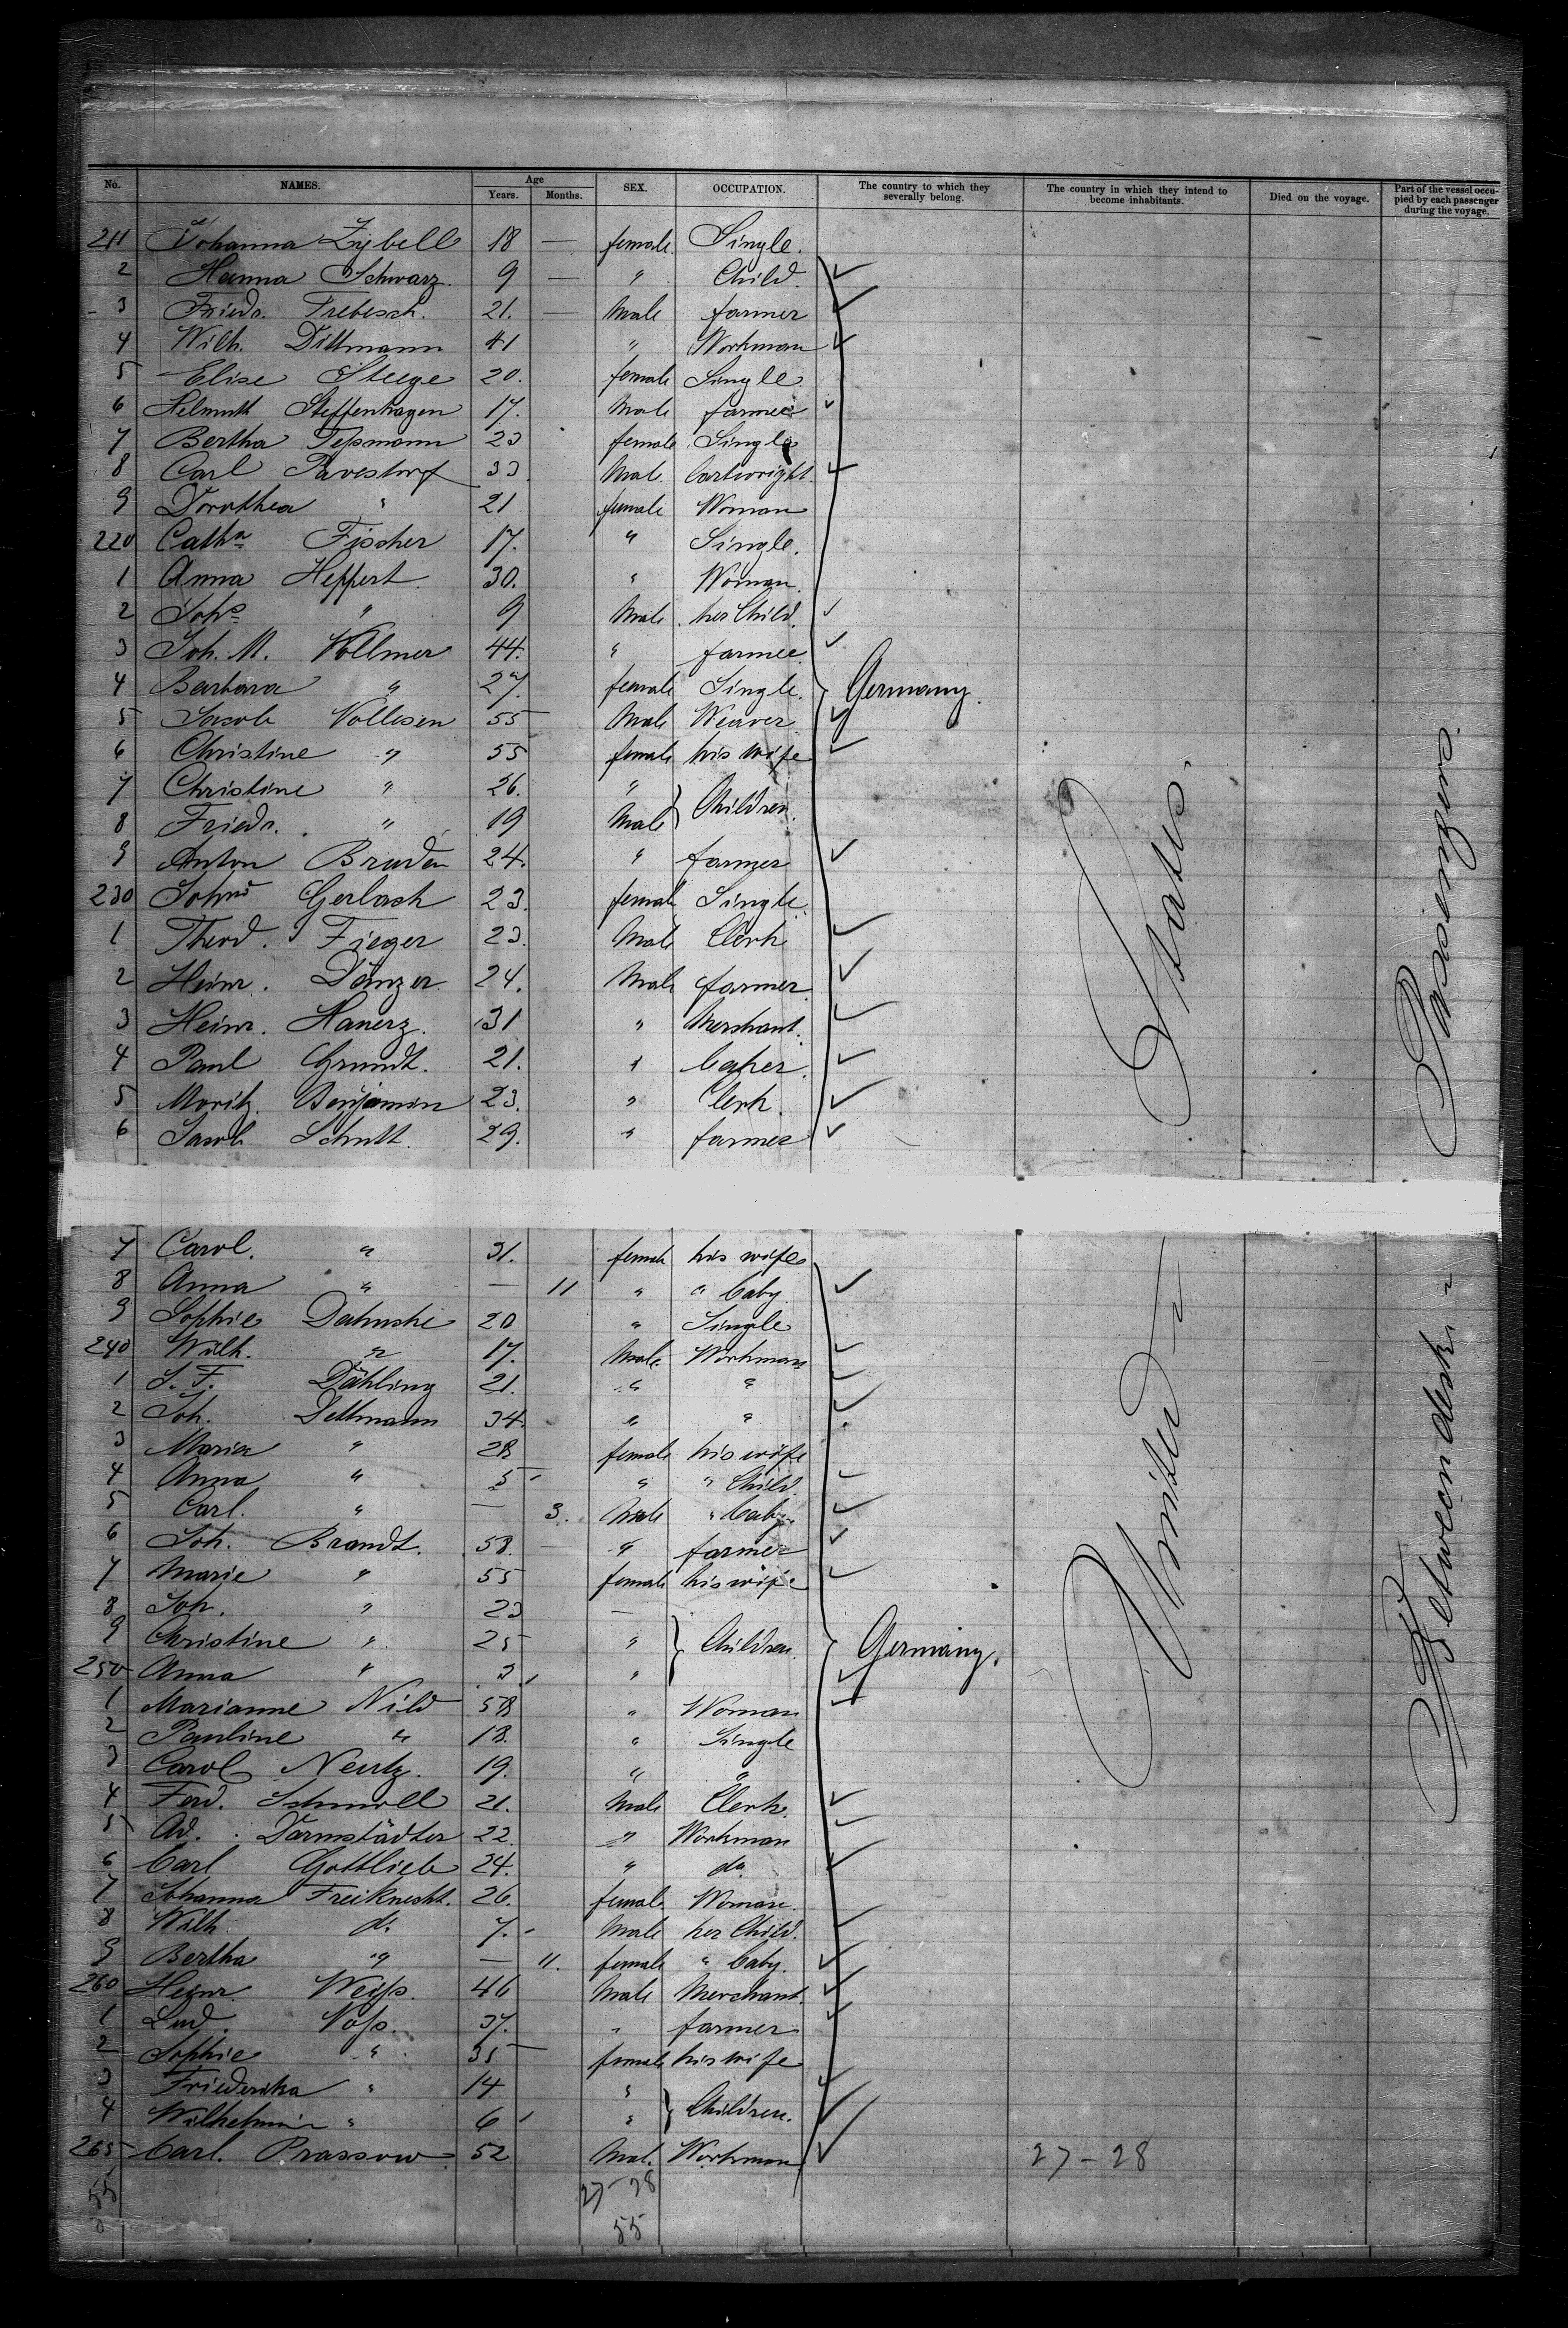 No. NAMES. Age Years. Months. SEX. OCCUPATION. The country to which they severally belong. The country in which they intend to become inhabitants. Died on the voyage. Part of the vessel occupied by each passenger during the voyage.
211 Johanna Zybell 18 — female Single.
2 Hanna Schwarz. 9 — " Child.
3 Friedr. Trebesch. 21. — Male farmer
4 Wilh. Dittmann 41 " Workman
5 Elise Steege 20. female Single.
6 Helmuth Steffenhagen 17. Male farmer
7 Bertha Teßmann 23 female Single
8 Carl Pavestorf 33 Male Cartwright.
9 Dorothea " 21 female Woman
220 Cathn Fischer 17. " Single.
1 Anna Heffert. 30. " Woman.
2 Johs " 9 Male her Child.
3 Joh. M. Vollmer 44. " farmer
4 Barbara " 27. female Single. Germany.
5 Jacob Vollesen 55 Male Weaver
6 Christine " 55 female his wife
7 Christine " 26. " Children.
8 Friedr. " 19 Male
9 Anton Bruder 24. " farmer
230 Gerlach 23. female Single.
1 Theod. Fieger 23. Male Clerk
2 Heinr. Dänzer 24. Male farmer
3 Heinr. Hanerz. 31 " Merchant.
4 Paul Grundt. 21. "
5 Moritz. Benjamin 23. " Clerk.
6 Jacob Schutt. 29. " farmer
7 Carol. " 31. female his wife
8 Anna " — 11 " " baby.
9 Sophie Dahnshe 20 " Single
240 Wilh. " 17. Male Workman
1 J. F. Dähling 21. " "
2 Joh. Dettmann 34. " "
3 Maria " 28 female his wife
4 Anna " 5 " " Child.
5 Carl. " — 3. Male " baby.
6 Joh. Brandt. 58. — " farmer
7 Marie " 55 female his wife
8 Joh. " 23 —
9 Christine " 25 " Children. Germany.
250 Anna " 3. "
1 Marianne Nild 58 " Woman
2 Pauline " 18. " Single
3 Carol Neutz. 19. " "
4 Ferd. Schmoll 21. Male Clerk.
5 Ad. Darmstädter 22. " Workman
6 Carl Gottlieb 24. " do
7 Johanna Freiknecht. 26. female Woman.
8 Wilh. do 7. Male her Child.
9 Bertha " — 11. female " baby.
260 Heinr. Weiß. 46 Male Merchant.
1 Lud. Voß. 37. " farmer
2 Sophie " 35 female his wife
3 Friederika " 14 " Children.
4 Wilhelmin " 6 "
265 Carl. Prassow. 52 Male Workman
United States.
Between deck Passengers.
27-28
55 27-28
55